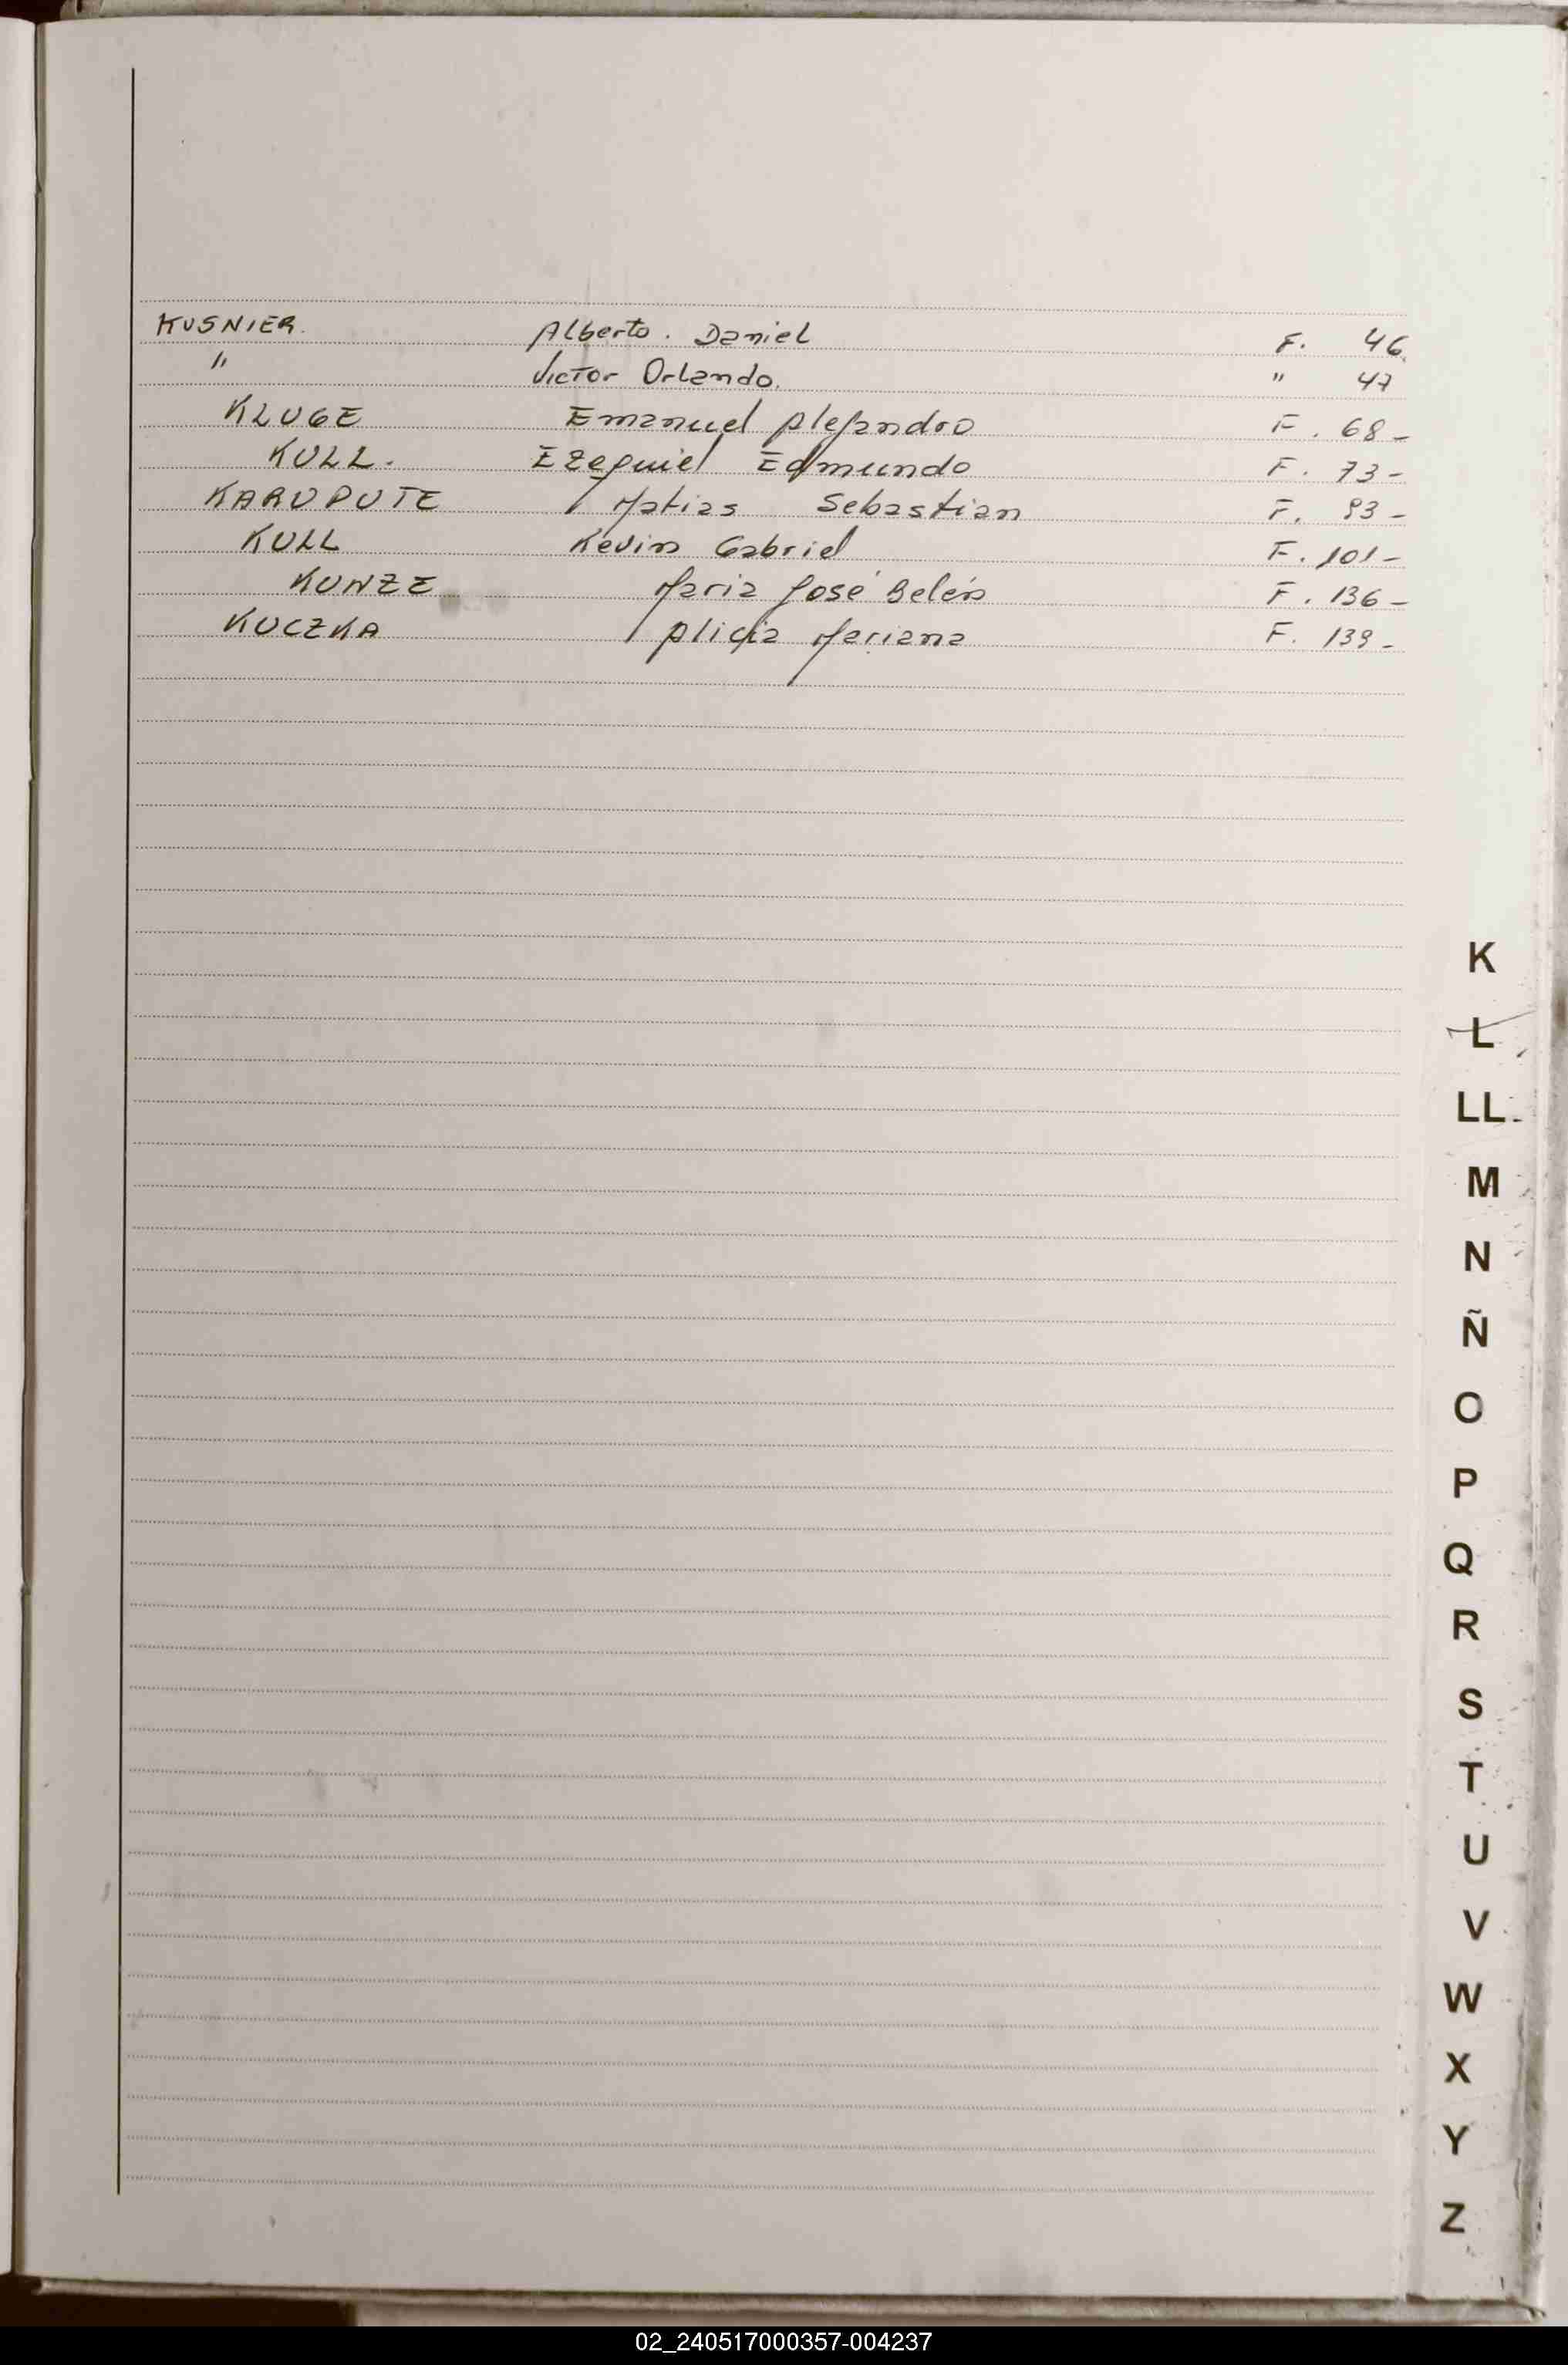 KUSNIER. Alberto. Daniel F. 46.
" Victor Orlando. " 47
KLUGE Emanuel Alejandro F. 68-
KULL. Ezequiel Edmundo F. 73-
KARUPUTE Matias Sebastian F. 93-
KULL Kevin Gabriel F. 101-
KUNZE Maria José Belén F. 136-
KUCZKA Alicia Mariana F. 139-
K
L
LL
M
N
Ñ
O
P
Q
R
S
T
U
V
W
X
Y
Z
02_240517000357-004237